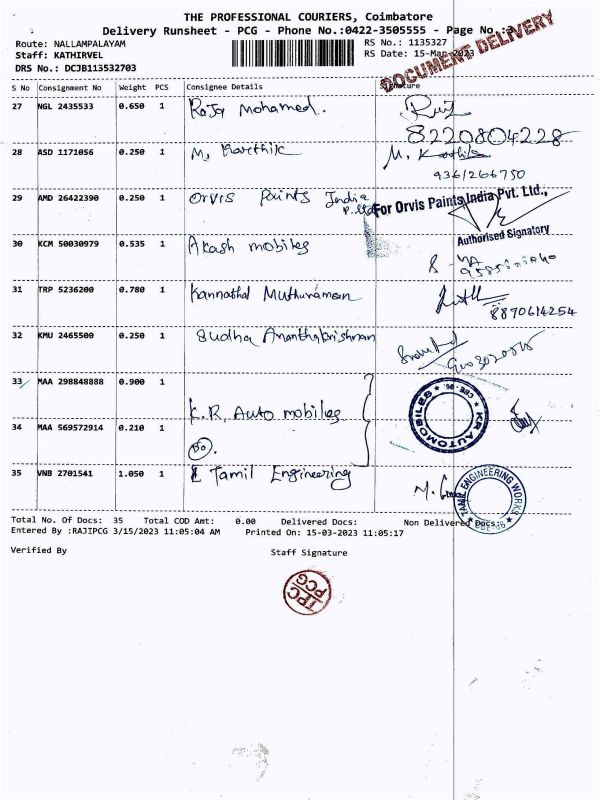 THE PROFESSIONAL COURIERS, Coimbatore
Delivery Runsheet - PCG - Phone No.:0422-3505555 - Page No.:
DOCUMENT DELIVERY
Route: NALLAMPALAYAM
RS No.: 1135327
Staff: KATHIRVEL
RS Date: 15-Mar-2023
DRS No.: DCJB113532703
S No Consignment No Weight PCS Consignee Details Signature
27 NGL 2435533 0.650 1 Raja Mohamed.
8220804228
28 ASD 1171056 0.250 1 M. Karthik M. Karthik
9361266750
29 AMD 26422390 0.250 1 Orvis Paints India P. Ltd
For Orvis Paints India Pvt. Ltd.,
Authorised Signatory
30 KCM 50030979 0.535 1 Akash mobiles
31 TRP 5236200 0.780 1 Kannathal Muthuraman
8870614254
32 KMU 2465500 0.250 1 Sudha Ananthakrishnan
33 MAA 298848888 0.900 1
K.R. Auto mobiles
KR AUTOMOBILES
34 MAA 569572914 0.210 1 Do.
35 VNB 2701541 1.050 1 Tamil Engineering
TAMIL ENGINEERING WORKS
Total No. Of Docs: 35 Total COD Amt: 0.00 Delivered Docs: Non Delivered Docs:
Entered By :RAJIPCG 3/15/2023 11:05:04 AM Printed On: 15-03-2023 11:05:17
Verified By Staff Signature
TPC
PCG